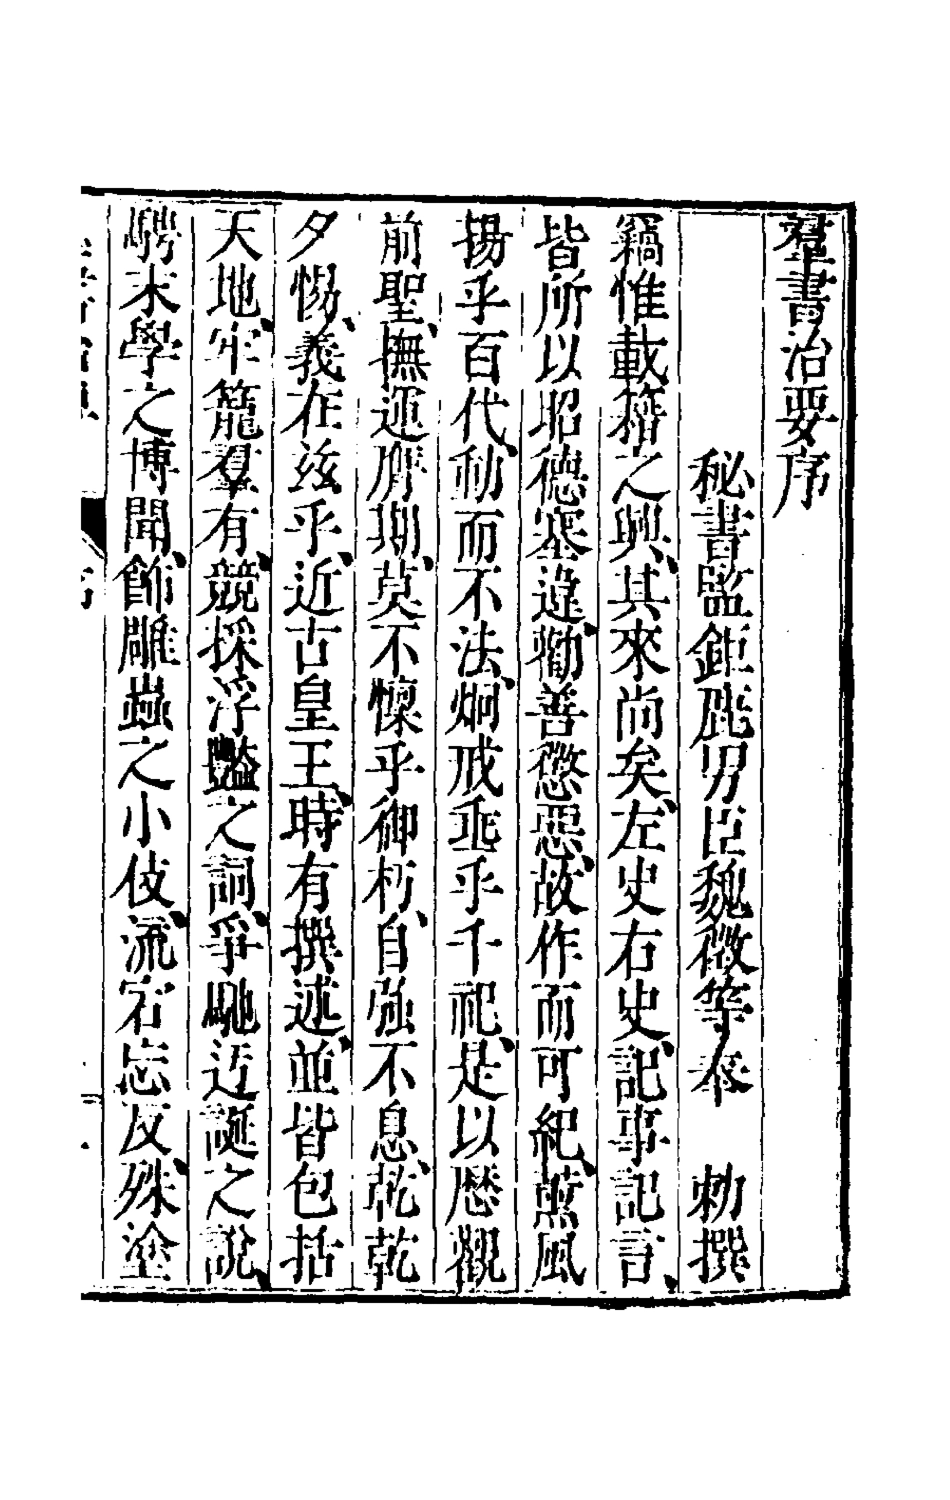 羣書治要序
秘書監鉅鹿男臣魏徵等奉　勅撰
竊惟載籍之興、其來尚矣、左史右史、記事記言、
皆所以昭德塞違、勸善懲惡、故作而可紀、薰風
揚乎百代、動而不法、炯戒垂乎千祀、是以歷觀
前聖、撫運膺期、莫不懍乎御朽、自強不息、乾乾
夕惕、義在茲乎、近古皇王、時有撰述、並皆包括
天地、牢籠羣有、競採浮豔之詞、爭馳迃誕之說、
騁末學之博聞、飾雕蟲之小伎、流宕忘反、殊塗